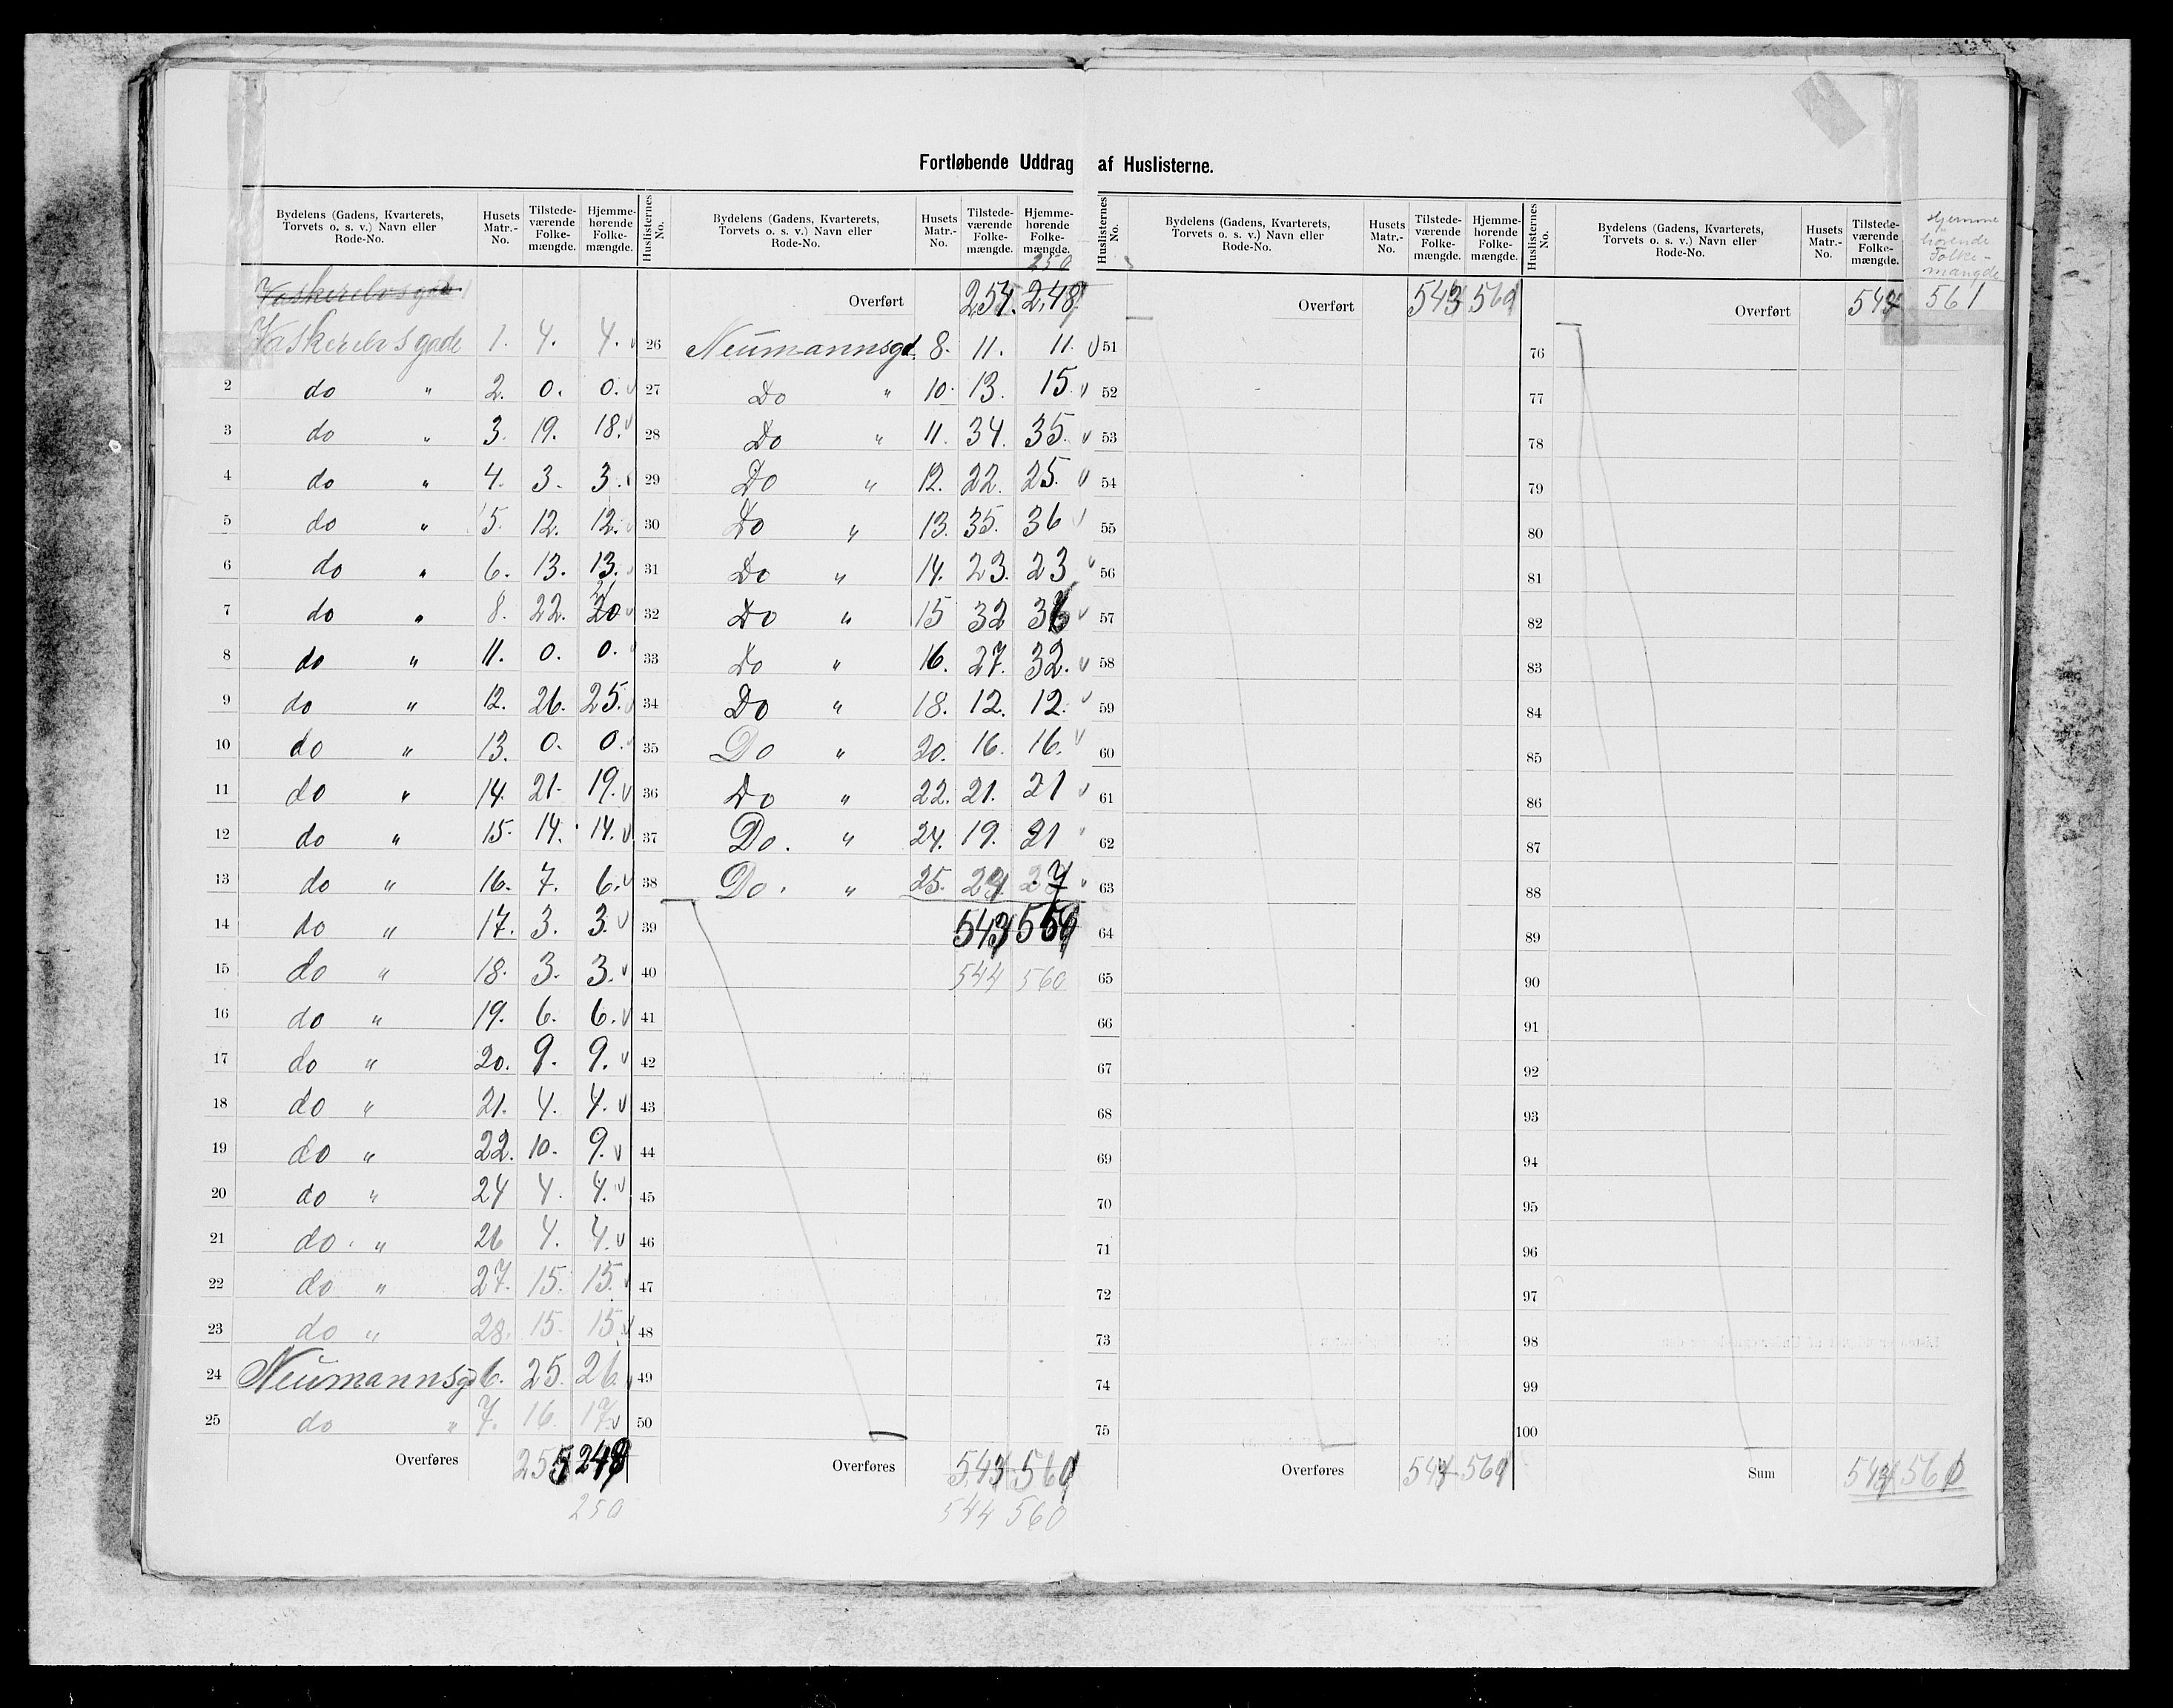 Fortløbende Uddrag af Huslisterne.
Bydelens (Gadens, Kvarterets, Torvets o. s. v.) Navn eller Rode-No. Husets Matr.-No. Tilstede-værende Folke-mængde. Hjemme-hørende Folke-mængde.
Vaskerelvsgade 1. 4. 4. v
2 do " 2. 0. 0. v
3 do " 3. 19. 18. v
4 do " 4. 3. 3. v
5 do " 5. 12. 12. v
6 do " 6. 13. 13.
7 do " 8. 22. 20 v
8 do " 11. 0. 0.
9 do " 12. 26. 25.
10 do " 13. 0. 0.
11 do " 14. 21. 19. v
12 do " 15. 14. 14. v
13 do " 16. 7. 6. v
14 do " 17. 3. 3. v
15 do " 18. 3. 3. v
16 do " 19. 6. 6. v
17 do " 20. 9. 9. v
18 do " 21. 4. 4. v
19 do " 22. 10. 9. v
20 do " 24 4. 4. v
21 do " 26 4. 4. v
22 do " 27. 15. 15. v
23 do " 28. 15. 15 v
24 Neumannsgd 6. 25. 26
25 do " 7. 16. 17 v
Overføres 255 248
250
Huslisternes No. Bydelens (Gadens, Kvarterets, Torvets o. s. v.) Navn eller Rode-No. Husets Matr.-No. Tilstede-værende Folke-mængde. Hjemme-hørende Folke-mængde.
250
Overført 254. 248
26 Neumannsgd. 8. 11. 11. v
27 Do " 10. 13. 15 v
28 Do " 11. 34. 35. v
29 Do " 12. 22. 25. v
30 Do " 13. 35. 36 v
31 Do " 14. 23. 23 v
32 Do " 15 32 36 v
33 Do " 16. 27. 32. v
34 Do " 18. 12. 12. v
35 Do " 20. 16. 16. v
36 Do " 22. 21. 21 v
37 Do. " 24. 19. 21
38 Do. " 25.
39 543
40 544 560
41
42
43
44
45
46
47
48
49
50
Overføres 543 560
544 560
Huslisternes No. Bydelens (Gadens, Kvarterets, Torvets o. s. v.) Navn eller Rode-No. Husets Matr.-No. Tilstede-værende Folke-mængde. Hjemme-hørende Folke-mængde.
Overført 543 560
51
52
53
54
55
56
57
58
59
60
61
62
63
64
65
66
67
68
69
70
71
72
73
74
75
Overføres 543 560
Huslisternes No. Bydelens (Gadens, Kvarterets, Torvets o. s. v.) Navn eller Rode-No. Husets Matr.-No. Tilstede-værende Folke-mængde. Hjemme hørende Folke-mængde
Overført 543 561
76
77
78
79
80
81
82
83
84
85
86
87
88
89
90
91
92
93
94
95
96
97
98
99
100
Sum 543 560